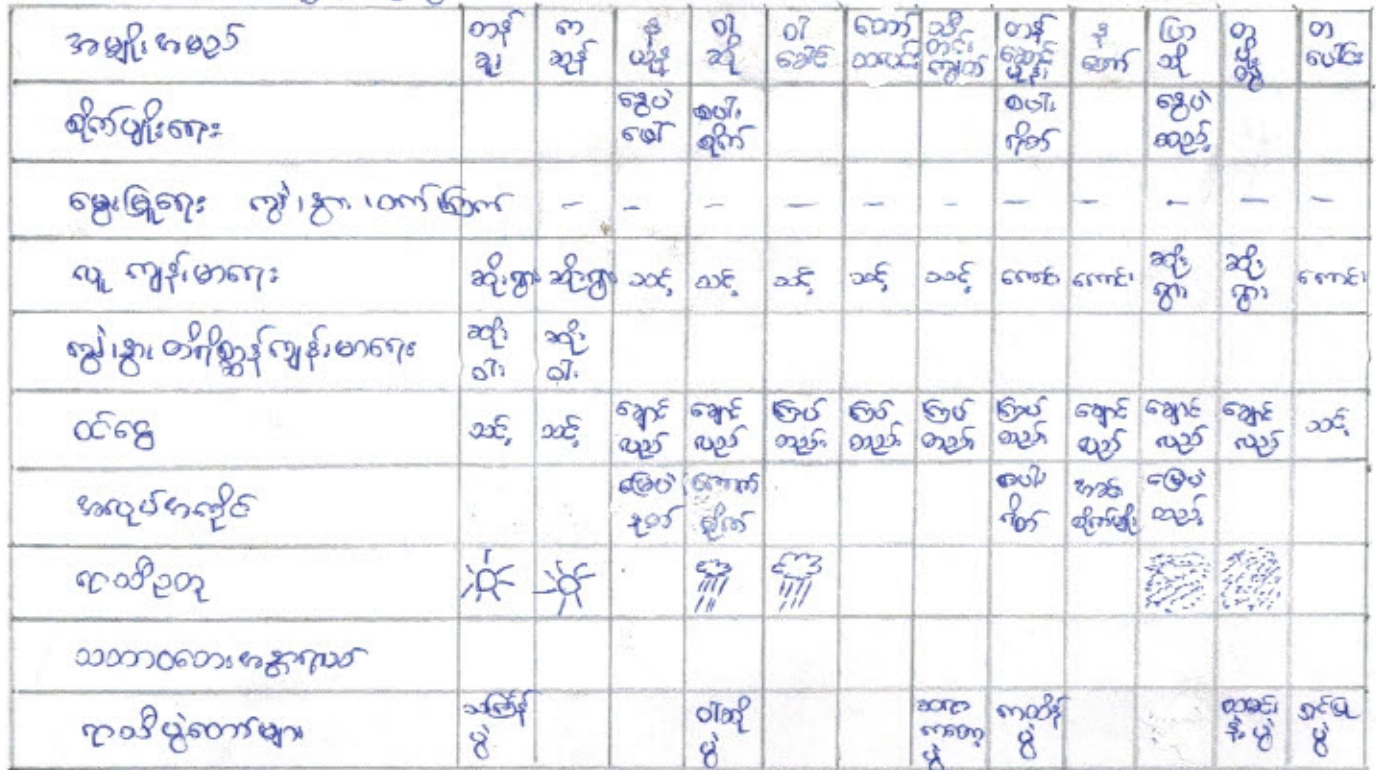 အမျိုးအမည် တန်ခူး ကဆုန် နယုန် ဝါဆို ဝါခေါင် တော်သလင်း သီတင်းကျွတ် တန်ဆောင်မုန်း နတ်တော် ပြာသို တပို့တွဲ တပေါင်း
စိုက်ပျိုးရေး မြေပဲဖော် စပါးစိုက် စပါးရိတ် မြေပဲဆည့်
မွေးမြူရေး ကျွဲ၊ နွား၊ ဝက်၊ ကြက် - - - - - - - - - - -
လူ ကျန်းမာရေး ဆိုးရွား ဆိုးရွား သင့် သင့် သင့် သင့် သင့် ကောင်း ကောင်း ဆိုးရွား ဆိုးရွား ကောင်း
ကျွဲ၊ နွား၊ တိရိစ္ဆာန်ကျန်းမာရေး ဆိုးဝါး ဆိုးဝါး
ဝင်ငွေ သင့် သင့် ချောင်လည် ချောင်လည် ကြပ်တည်း ကြပ်တည်း ကြပ်တည်း ကြပ်တည်း ချောင်လည် ချောင်လည် ချောင်လည် သင့်
အလုပ်အကိုင် မြေပဲနုတ် ကောက်စိုက် စပါးရိတ် စိုက်ပျိုး မြေပဲဆည့်
ရာသီဥတု
သဘာဝဘေးအန္တရာယ်
ရာသီပွဲတော်များ သင်္ကြန်ပွဲ ဝါဆိုပွဲ ဆရာကန်တော့ပွဲ ကထိန်ပွဲ ထမင်းနဲပွဲ ရှင်ပြုပွဲ